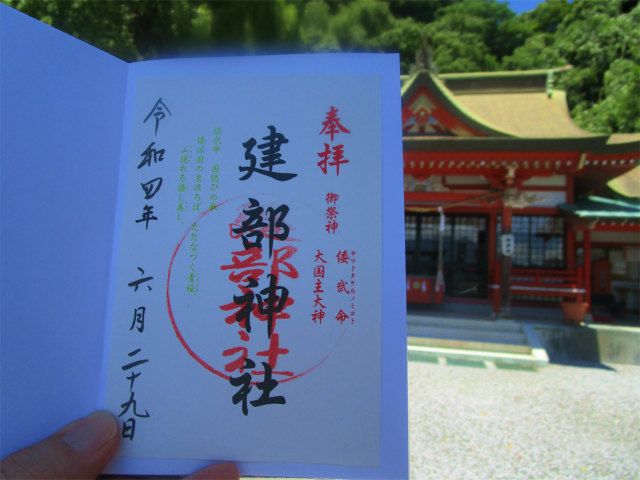 奉拝
御祭神
倭武命
ヤマトタケルノミコト
大国主大神
建部神社
建部神社
倭武命 国偲びの歌
倭は国のまほろば、たたなづく青垣、
山隠れる倭し美し
令和四年 六月 二十九日